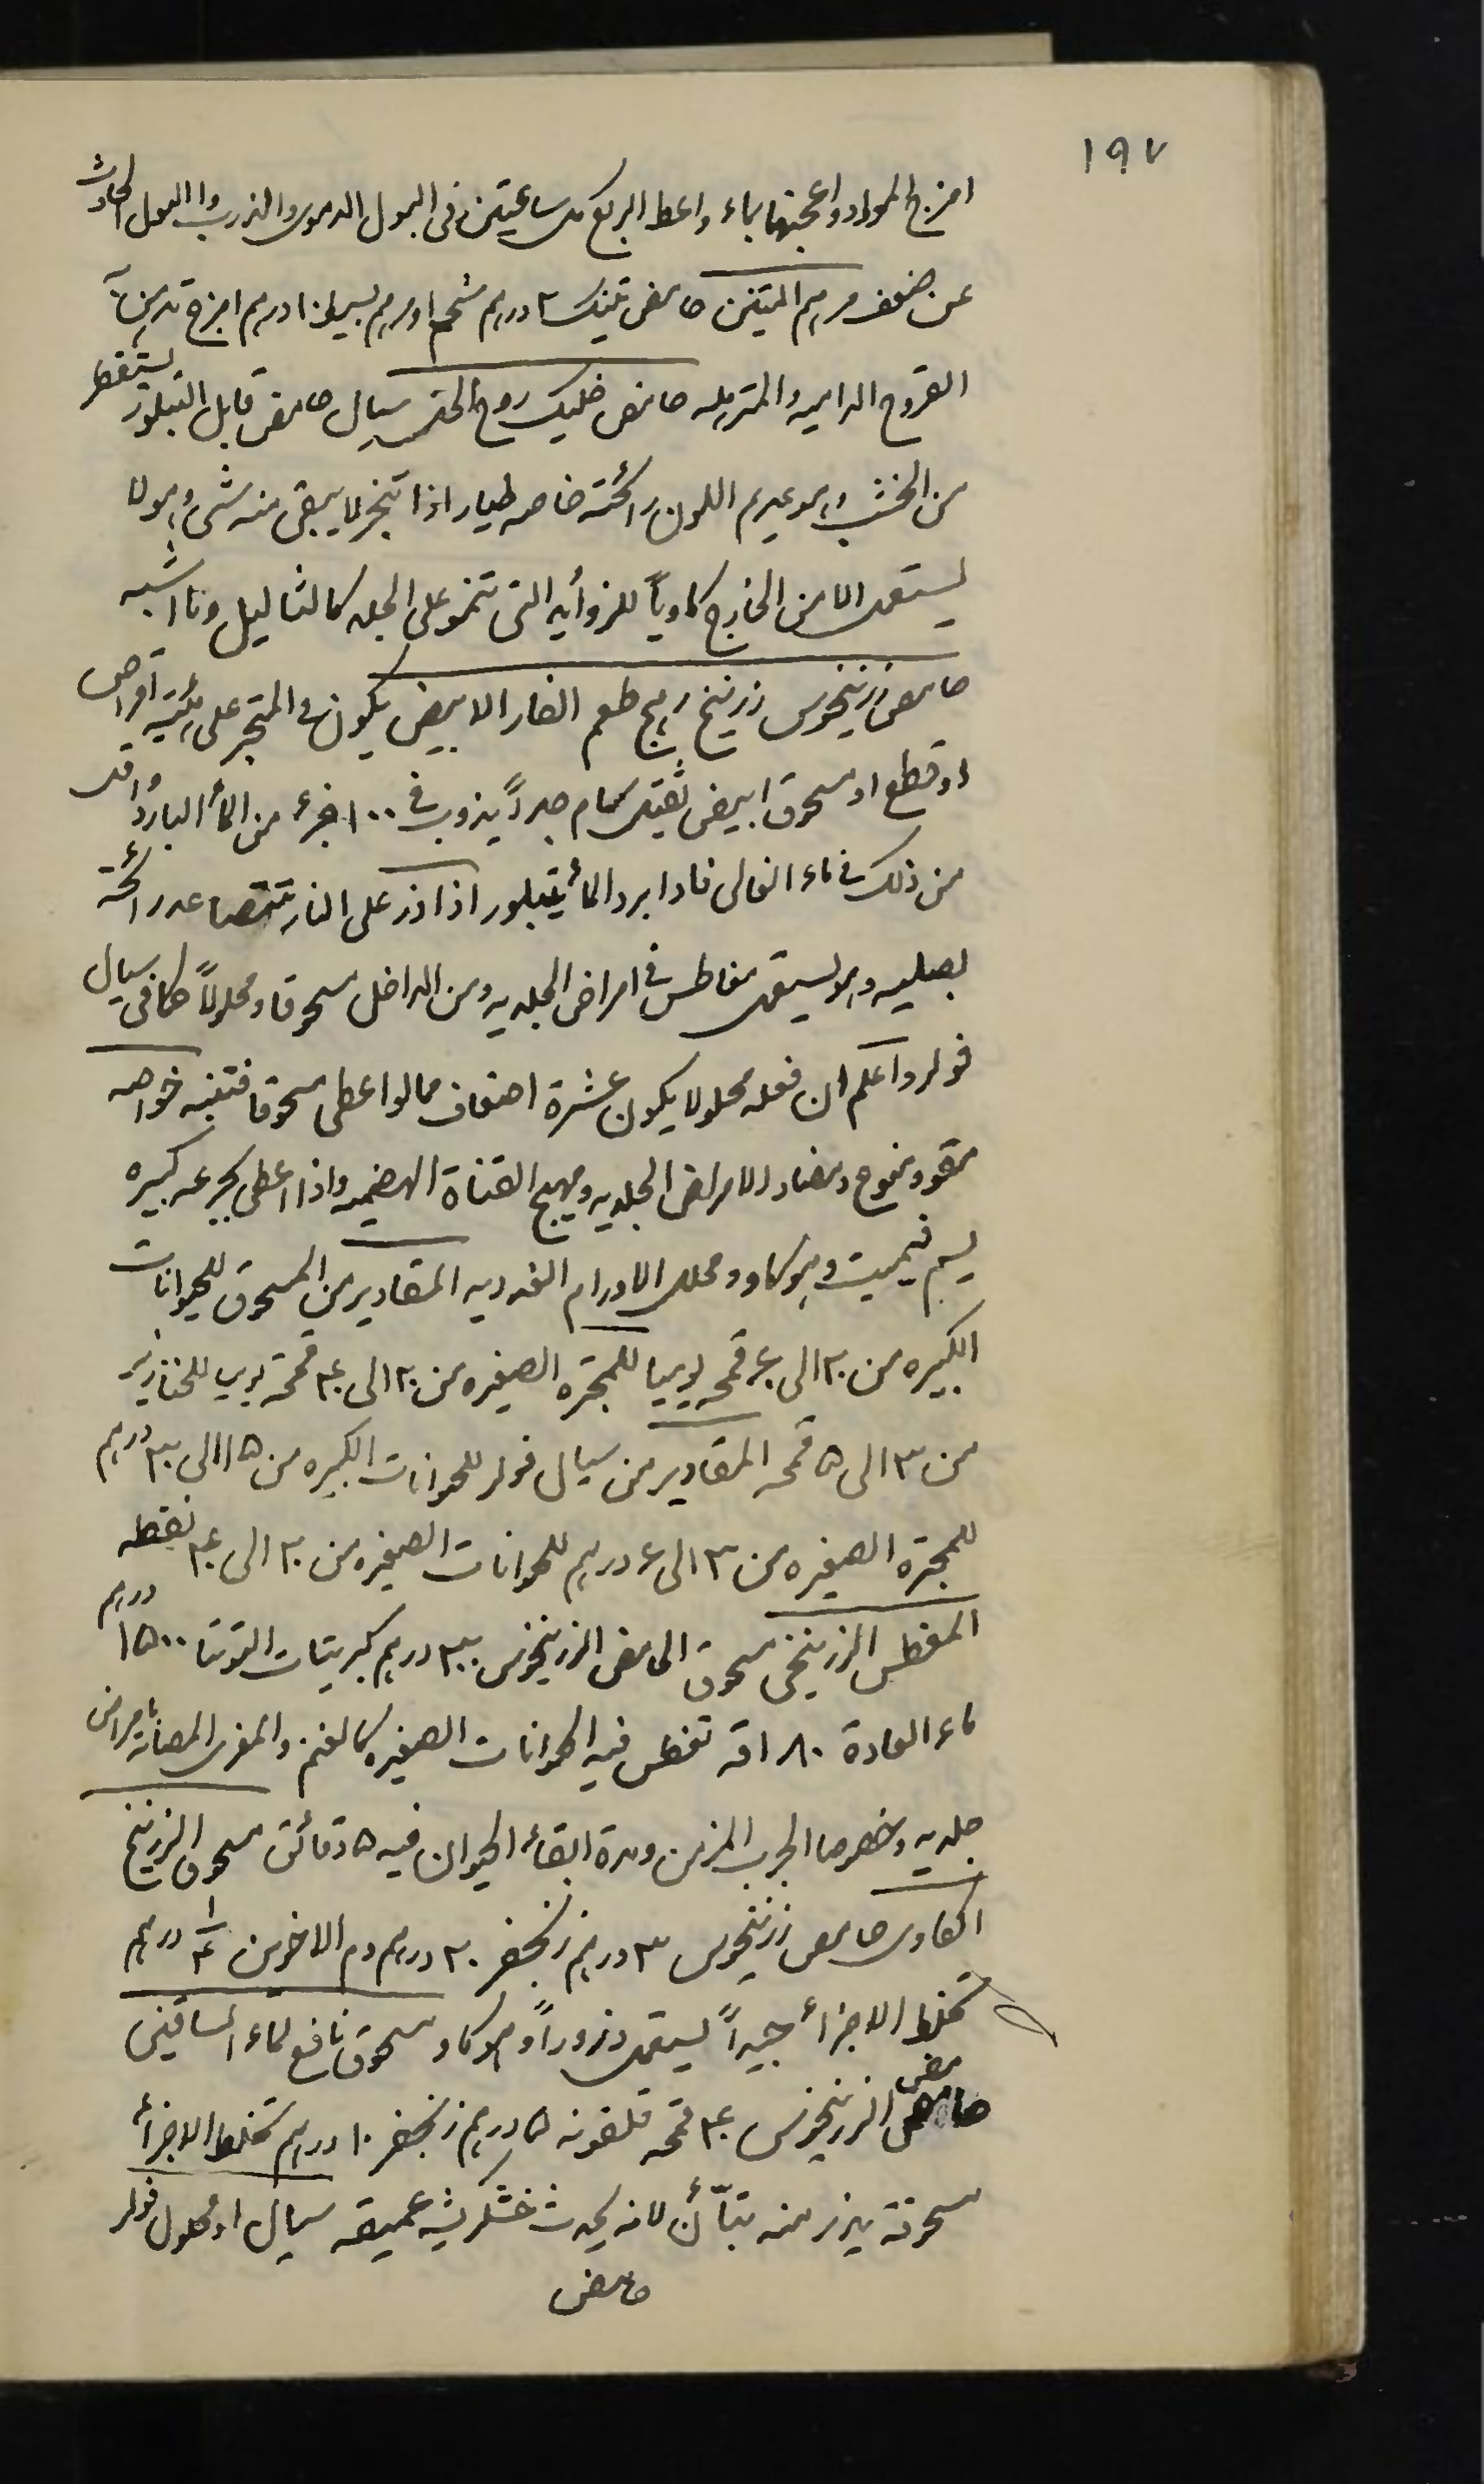 ١٩٧
امزج المواد واعجنها بماء واعط الربع كل ساعتين فى البول الدموى والذرب والبول الحادث
عن ضعف مرهم التينن حامض تنيك ٢ درهم شحم او مرهم بسيط ١٠ درهم امزج تدهن به
القروح الداميه والمترهله حامض خليك روح الخل سيال حامض قابل التبلور يستقطر
من الخشب وهو عديم اللون رائحته خاصه طيار اذا تبخر لا يبقى منه شئ وهو لا
يستعمل الا من الخارج كاوياً للزوائد التى تنمو على الجلد كالثاليل وما اشبه
حامض زرنيخوس زرنيخ رهج طعم الفار الابيض يكون فى المتجر على هيئة اقراص
او قطع او مسحوق ابيض ثقيل سام جداً يذوب فى ١٠٠ جزء من الماء البارد واقل
من ذلك فى ماء الغالى فاذا برد الماء يتبلور اذا ذر على النار تتصاعد رائحة
بصليه وهو يستعمل مغاطس فى امراض الجلديه ومن الداخل مسحوقا ومحلولاً كما فى سيال
فولر واعلم ان فعله محلولا يكون عشرة اضعاف مما لو اعطى مسحوقا فتنبه خواصه
مقو ومنوع ومضاد للامراض الجلديه ومهيج القناة الهضميه واذا اعطى بجرعه كبيره
يسم فيميت وهو كاو ومحلل الاورام الغدديه المقادير من المسحوق للحيوانات
الكبيره من ٢٠ الى ٤٠ قمحه يوميا للمجتره الصغيره من ٢٠ الى ٣٠ قمحة يومى للخنازير
من ٣ الى ٥ قمحه المقادير من سيال فولر للحيوانات الكبيره من ١٥ الى ٣٠ درهم
للمجترة الصغيره من ٣ الى ٤ درهم للحوانات الصغيره من ٢٠ الى ٣٠ نقطه
المغطس الزرنيخى مسحوق الحامض الزرنيخوس ٣٠٠ درهم كبريتات التوتيا ١٥٠٠ درهم
ماء العادة ٨٠ اقه تغطس فيه الحوانات الصغيره كالغنم والمعزى المصابه بامراض
جلديه وخصوصا الجرب المزمن ومدة ابقاء الحيوان فيه ٥ دقائق مسحوق الزرنيخ
الكاوى حامض زرنيخوس ٣ درهم زنجفر ٢٠ درهم دم الاخوين ١/٤ درهم
تخلط الاجزاء جيداً يستعمل ذروراً وهو كاو مسحوق نافع لماء الساقين
حامض الزرنيخوس ٣٠ قمحه قلفونه ٥ درهم زنجفر ١٠ درهم تخلط الاجزاء
مسحوقة يذر منه بتأن لانه يحدث خشكريشه عميقه سيال او محلول فولر
حامض